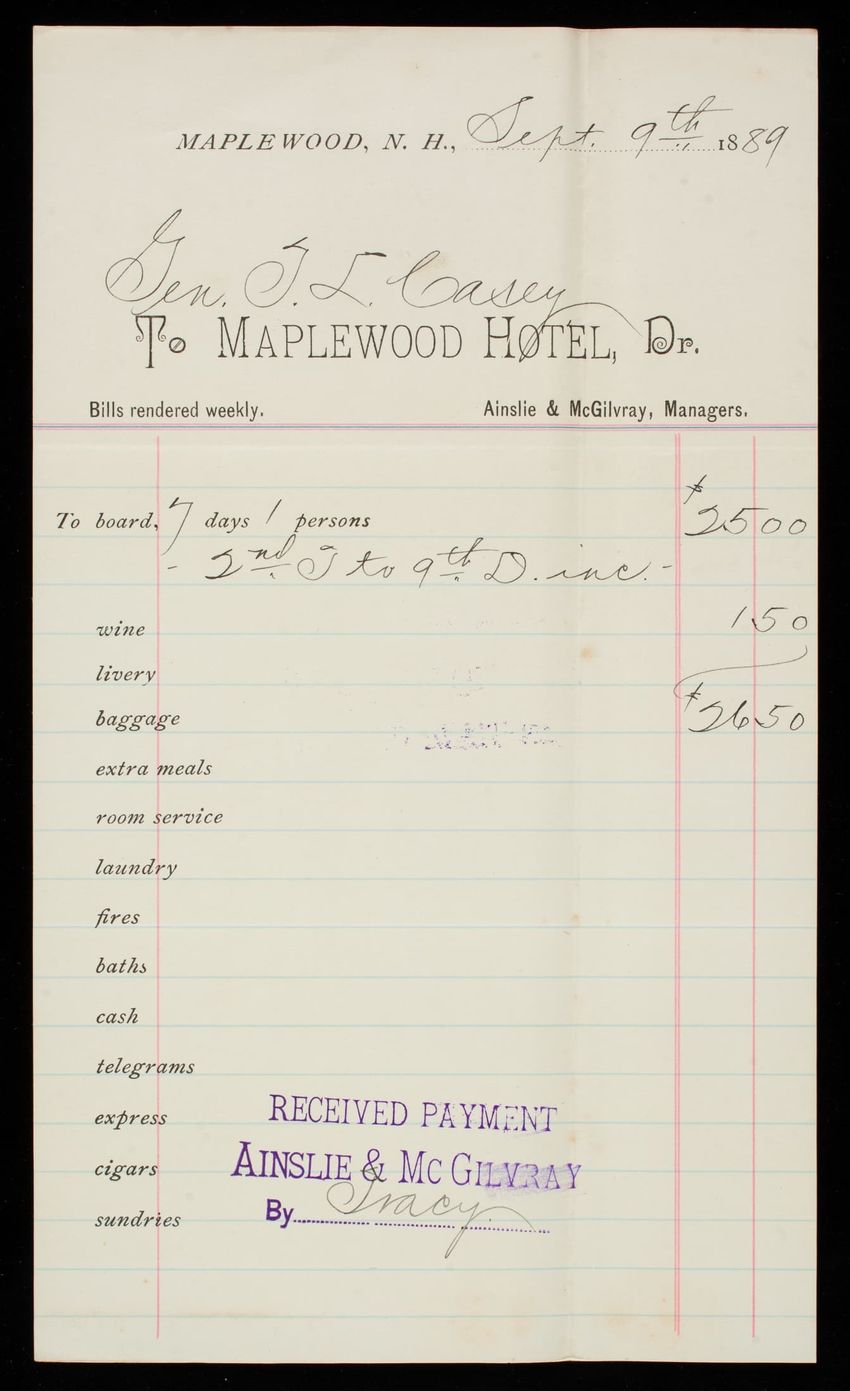 MAPLEWOOD, N. H., Sept. 9th 1889
Gen. T. L. Casey
To MAPLEWOOD HOTEL, Dr.
Bills rendered weekly. Ainslie & McGilvray, Managers.
To board, 7 days 1 persons $25 00
- 2nd T to 9th D. inc. -
wine 1 50
livery
baggage $26 50
extra meals
room service
laundry
fires
baths
cash
telegrams
express
RECEIVED PAYMENT
cigars
AINSLIE & MCGILVRAY
sundries
By Tracy